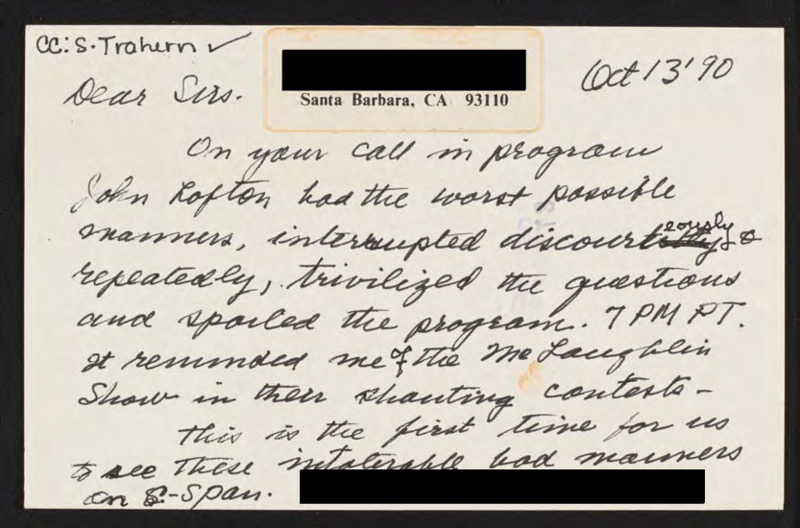 CC: S. Trahern ✓
Santa Barbara, CA 93110
Oct 13 '90
Dear Sirs.
On your call in program
John Lofton had the worst possible
manners, interrupted discourteously &
repeatedly, trivilized the questions
and spoiled the program. 7 PM PT.
It reminded me of the McLaughlin
Show in their shouting contests –
This is the first time for us
to see these intolerable bad manners
on C-Span.